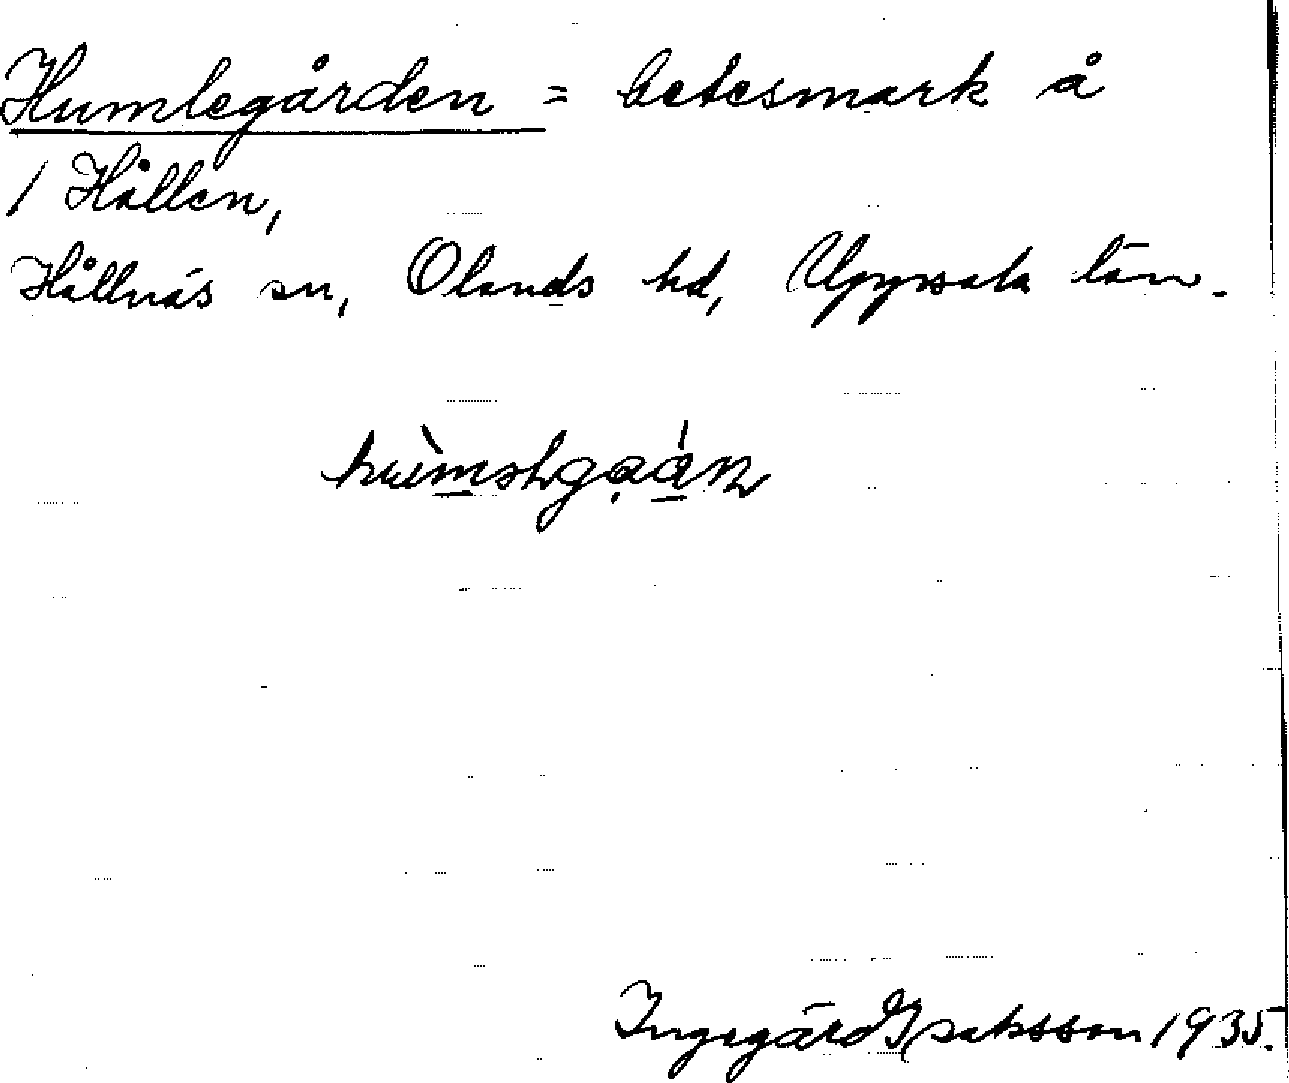 Humlegården = betesmark å
1 Hållen,
Hållnäs sn, Olands hd, Uppsala län.
Ingegärd Isaksson 1935.